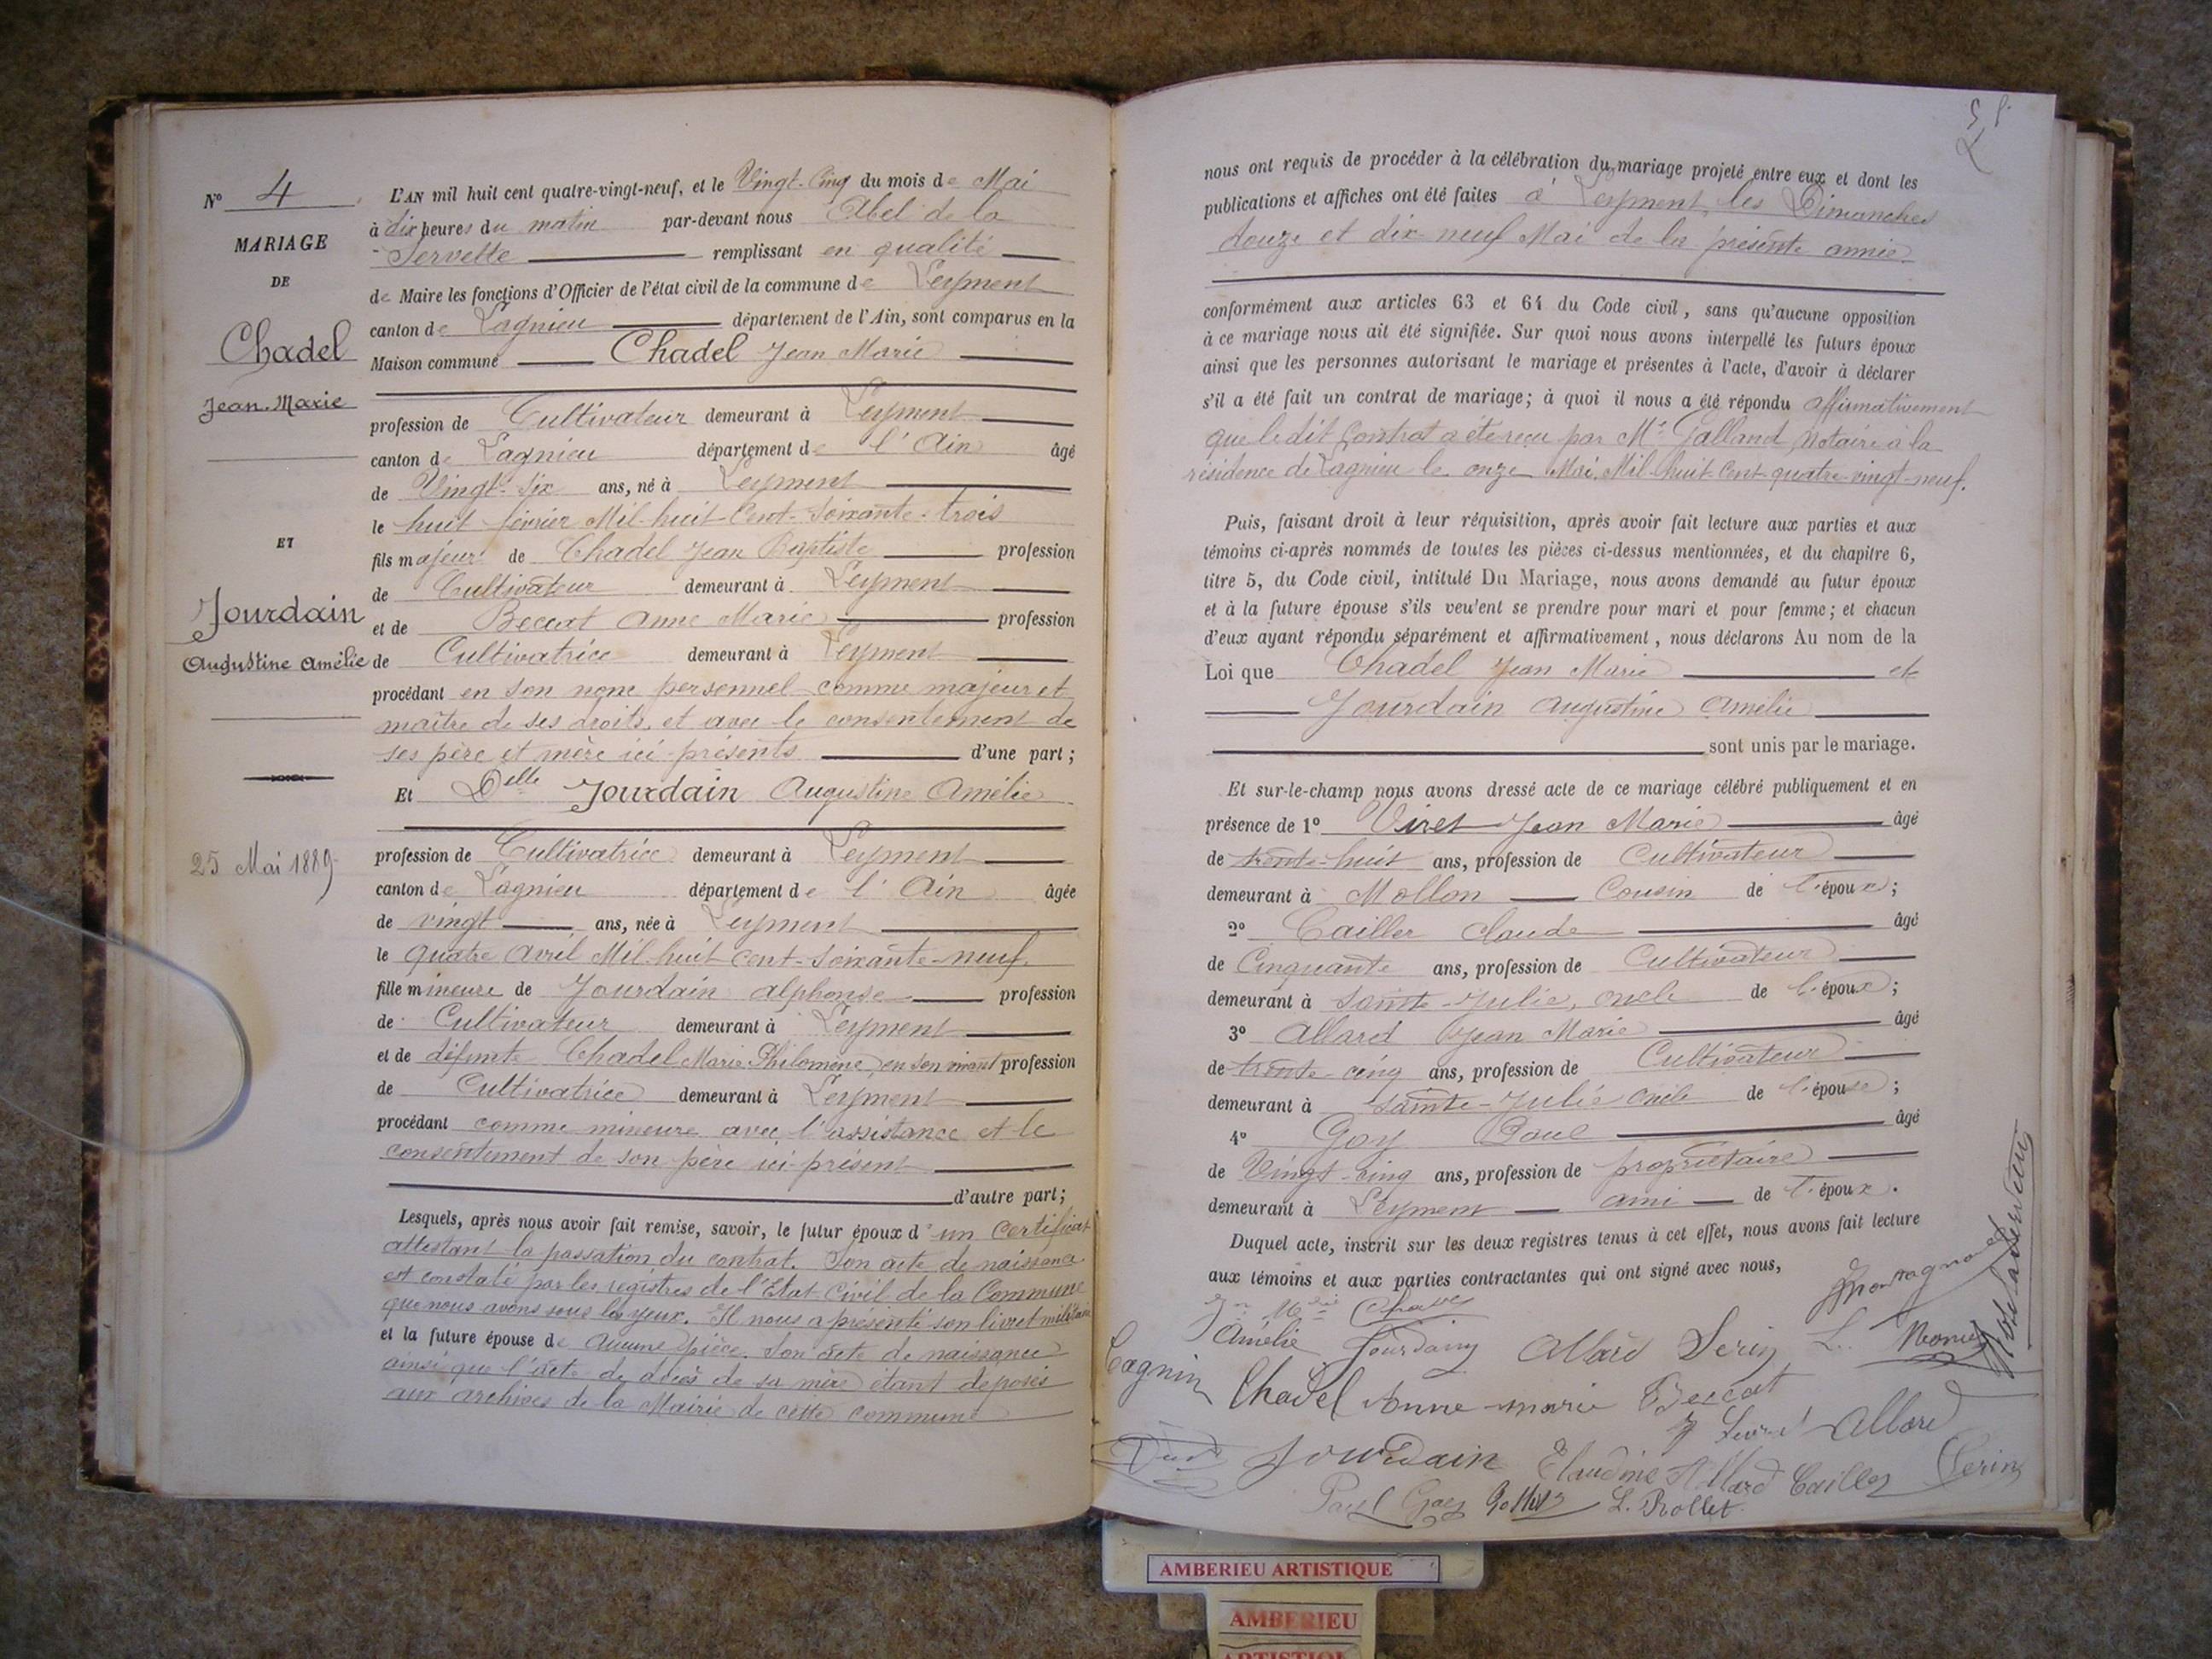 Nº 4
MARIAGE
DE
Chadel
Jean-Marie
ET
Jourdain
Augustine Amélie
25 Mai 1889
L'AN mil huit cent quatre-vingt-neuf, et le Vingt-Cinq du mois de Mai
à dix heures du matin par-devant nous Abel de la
Servette remplissant en qualité
de Maire les fonctions d'Officier de l'état civil de la commune de Leyment
canton de Lagnieu département de l'Ain, sont comparus en la
Maison commune Chadel Jean Marie
profession de Cultivateur demeurant à Leyment
canton de Lagnieu département de l'Ain âgé
de Vingt-Six ans, né à Leyment
le huit février Mil-huit-Cent-Soixante-trois
fils majeur de Chadel Jean Baptiste profession
de Cultivateur demeurant à Leyment
et de Beccat Anne Marie profession
de Cultivatrice demeurant à Leyment
procédant en son nom personnel comme majeur et
maître de ses droits, et avec le consentement de
ses père et mère ici présents d'une part;
Et Delle Jourdain Augustine Amélie
profession de Cultivatrice demeurant à Leyment
canton de Lagnieu département de l'Ain âgée
de vingt ans, née à Leyment
le quatre Avril Mil-huit cent-Soixante-neuf
fille mineure de Jourdain alphonse profession
de Cultivateur demeurant à Leyment
et de défunte Chadel Marie Philomène, en son vivant profession
de Cultivatrice demeurant à Leyment
procédant comme mineure avec l'assistance et le
consentement de son père ici présent
d'autre part;
Lesquels, après nous avoir fait remise, savoir, le futur époux d'un Certificat
attestant la passation du contrat. Son acte de naissance
est constaté par les registres de l'Etat-Civil de la Commune
que nous avons sous les yeux. Il nous a présenté son livret militaire
et la future épouse de Aucune pièce. Son acte de naissance
ainsi que l'acte de décès de sa mère étant déposés
aux archives de la Mairie de cette commune
nous ont requis de procéder à la célébration du mariage projeté entre eux et dont les
publications et affiches ont été faites à Leyment, les Dimanches
douze et dix-neuf Mai de la présente année
conformément aux articles 63 et 64 du Code civil, sans qu'aucune opposition
à ce mariage nous ait été signifiée. Sur quoi nous avons interpellé les futurs époux
ainsi que les personnes autorisant le mariage et présentes à l'acte, d'avoir à déclarer
s'il a été fait un contrat de mariage; à quoi il nous a été répondu affirmativement
que le dit Contrat a été reçu par Me Galland, Notaire à la
résidence de Lagnieu le onze Mai Mil-huit-Cent-quatre-vingt-neuf.
Puis, faisant droit à leur réquisition, après avoir fait lecture aux parties et aux
témoins ci-après nommés de toutes les pièces ci-dessus mentionnées, et du chapitre 6,
titre 5, du Code civil, intitulé Du Mariage, nous avons demandé au futur époux
et à la future épouse s'ils veulent se prendre pour mari et pour femme; et chacun
d'eux ayant répondu séparément et affirmativement, nous déclarons Au nom de la
Loi que Chadel Jean Marie et
Jourdain Augustine Amélie
sont unis par le mariage.
Et sur-le-champ nous avons dressé acte de ce mariage célébré publiquement et en
présence de 1º Viret Jean Marie âgé
de trente-huit ans, profession de Cultivateur
demeurant à Mollon Cousin de l'époux;
2º Cailler Claude âgé
de Cinquante ans, profession de Cultivateur
demeurant à Sainte-Julie, oncle de l'époux;
3º Allard Jean Marie âgé
de trente-cinq ans, profession de Cultivateur
demeurant à Sainte-Julie oncle de l'épouse;
4º Goy Paul âgé
de Vingt-cinq ans, profession de propriétaire
demeurant à Leyment ami de l'époux.
Duquel acte, inscrit sur les deux registres tenus à cet effet, nous avons fait lecture
aux témoins et aux parties contractantes qui ont signé avec nous,
Amélie Jourdain Allard Serin
Chadel Anne marie Beccat
Allard
Jourdain Claudine Allard Cailler Serin
Paul Goy L. Rollet
AMBERIEU ARTISTIQUE
AMBERIEU
ARTISTIQUE